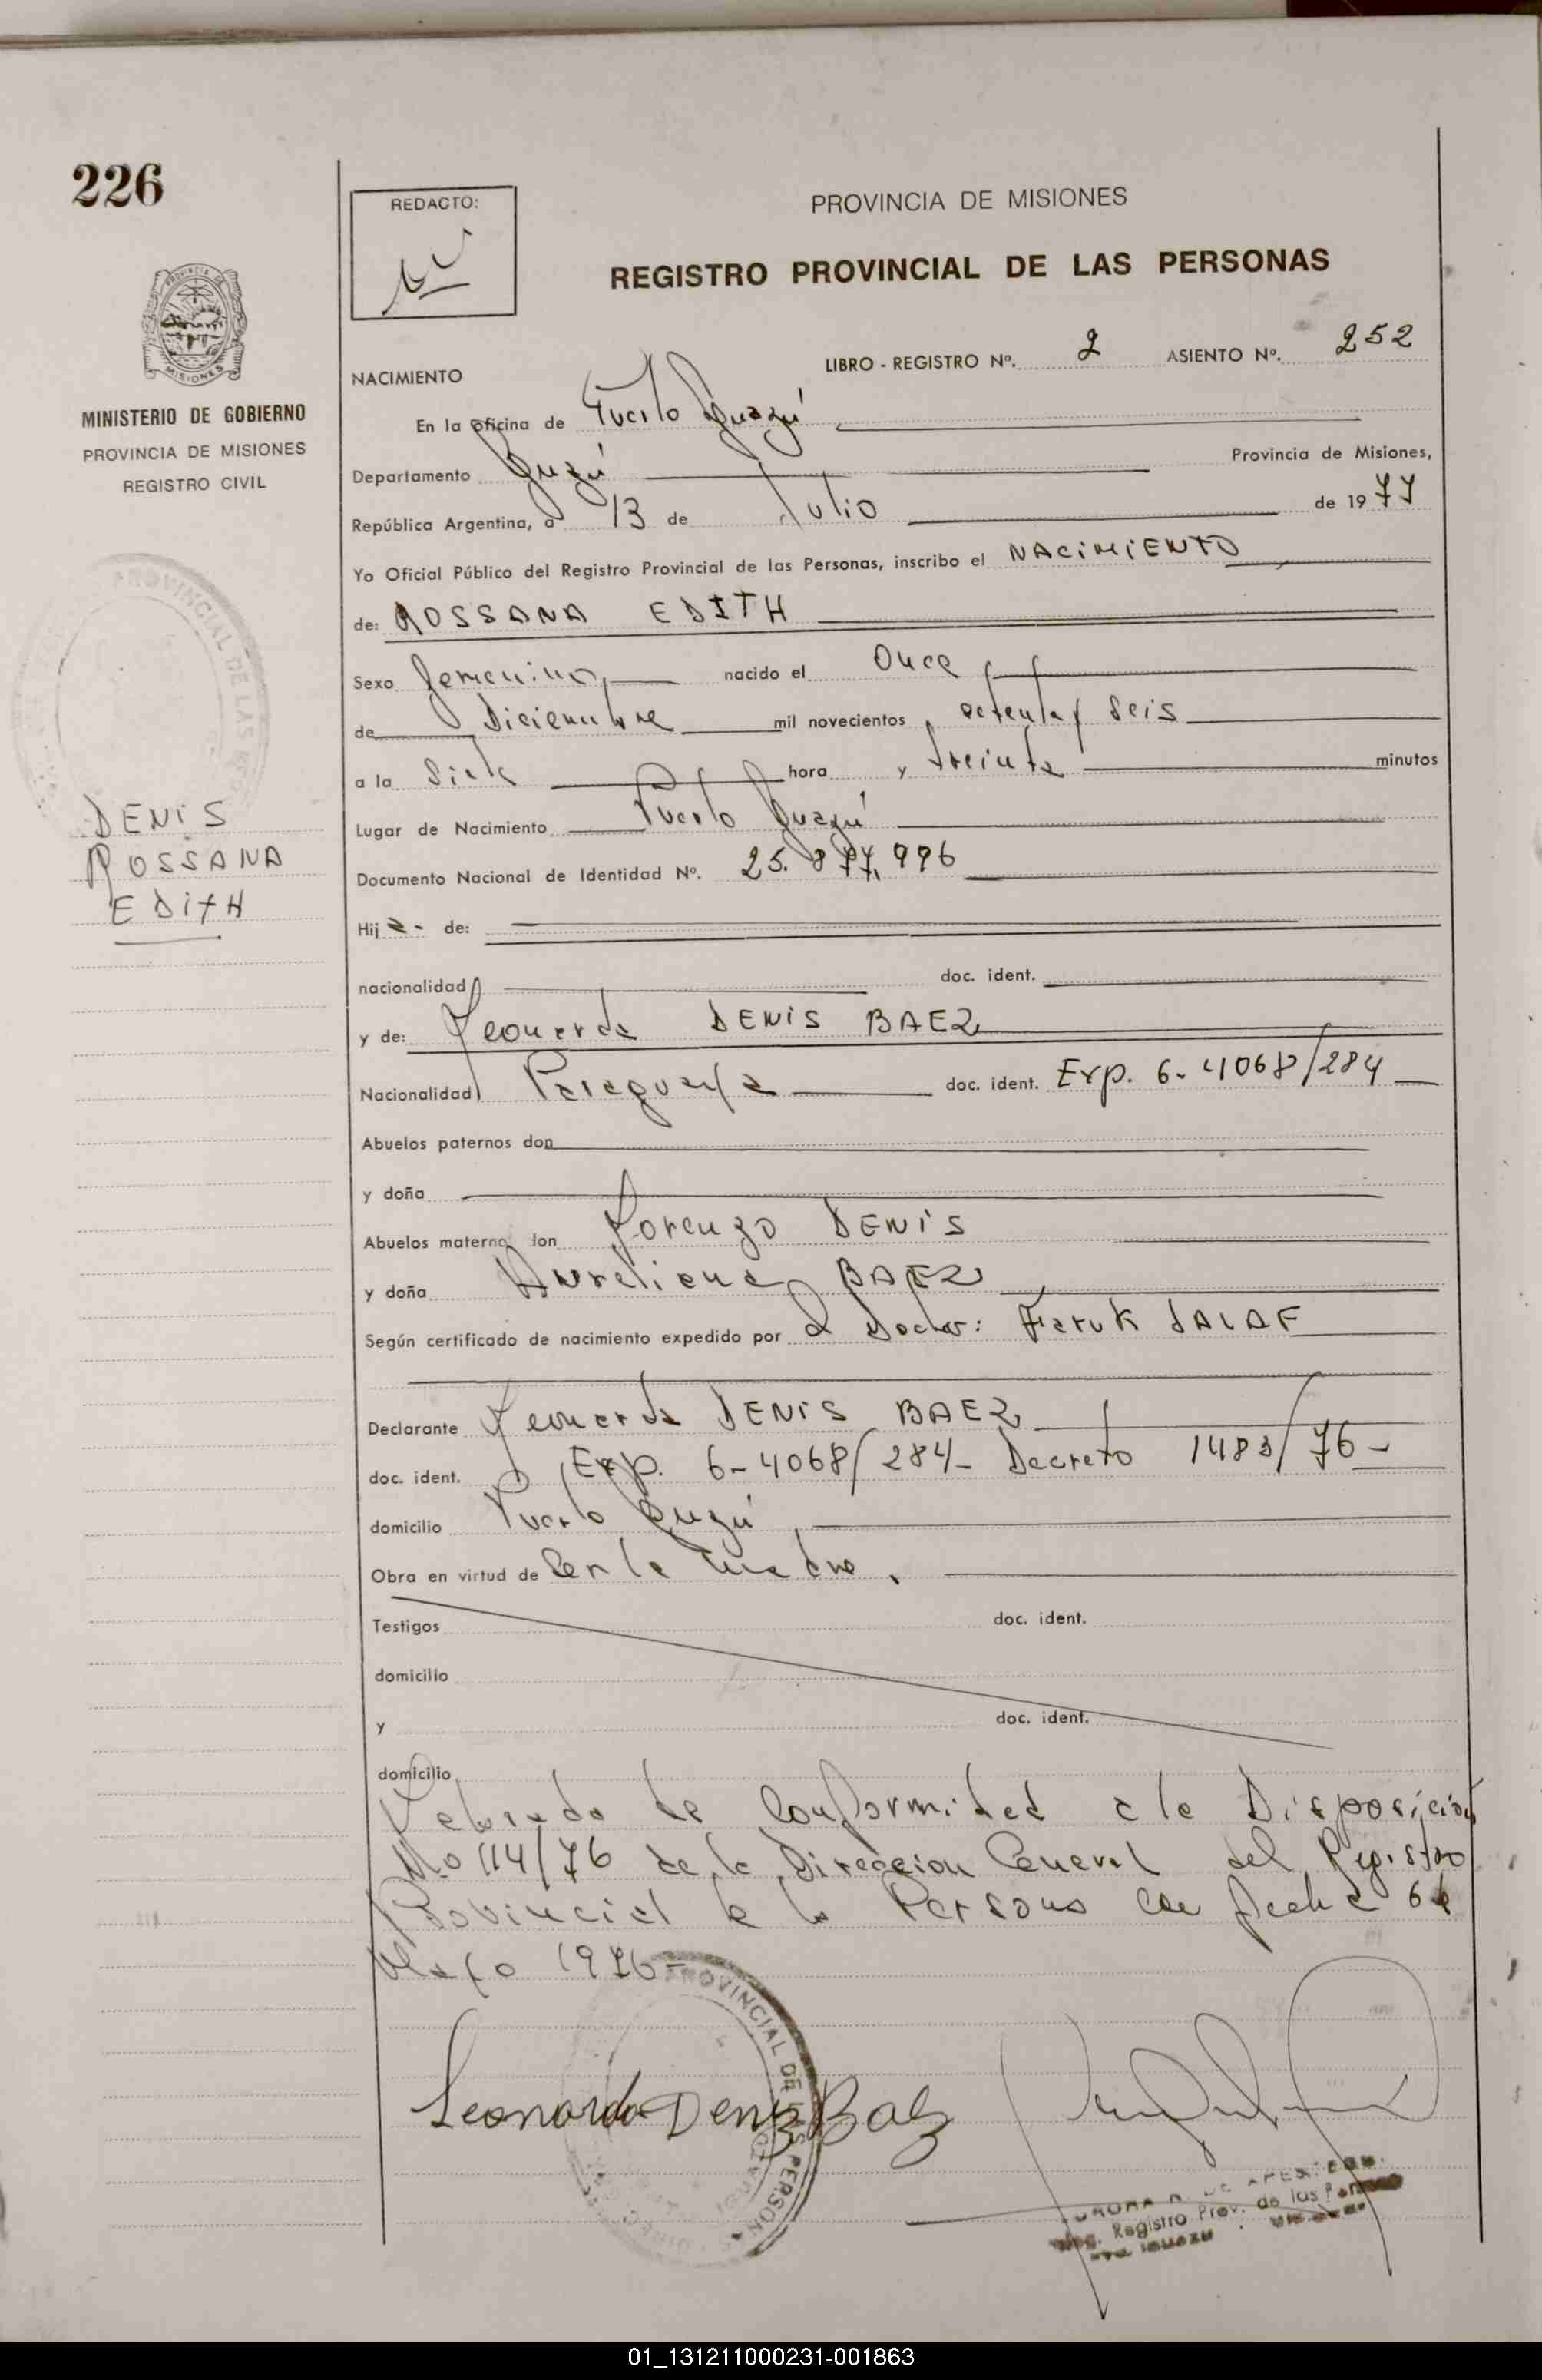 226
REDACTO:
PROVINCIA DE MISIONES
REGISTRO PROVINCIAL DE LAS PERSONAS
MISIONES
MINISTERIO DE GOBIERNO
PROVINCIA DE MISIONES
REGISTRO CIVIL
PROVINCIAL DE LAS
DENIS
ROSSANA
EDITH
LIBRO - REGISTRO Nº. 2 ASIENTO Nº. 252
NACIMIENTO
En la oficina de Puerto Iguazú
Departamento Iguazú Provincia de Misiones,
República Argentina, a 13 de Julio de 1977
Yo Oficial Público del Registro Provincial de las Personas, inscribo el NACIMIENTO
de: ROSSANA EDITH
Sexo femenino nacido el Once
de Diciembre mil novecientos setenta y seis
a la Siete hora y treinta minutos
Lugar de Nacimiento Puerto Iguazú
Documento Nacional de Identidad Nº. 25.877.996
Hija de:
nacionalidad doc. ident.
y de: Leonarda DENIS BAEZ
Nacionalidad Paraguaya doc. ident. Exp. 6-4068/284
Abuelos paternos don
y doña
Abuelos materno don Lorenzo DENIS
y doña Aureliana BAEZ
Según certificado de nacimiento expedido por el Doctor: Faruk JALAF
Declarante Leonarda DENIS BAEZ
doc. ident. Exp. 6-4068/284- Decreto 1483/76-
domicilio Puerto Iguazú
Obra en virtud de Ser la madre.
Testigos doc. ident.
domicilio
y doc. ident.
domicilio
Labrada de Conformidad a la Disposición
No 114/76 de la Direccion General del Registro
Provincial de las Personas con fecha 6 de
Mayo 1976-
PROVINCIAL DE LAS PERSONAS
Leonarda Denis Baez
Registro Prov. de las Personas
IGUAZU
01_131211000231-001863